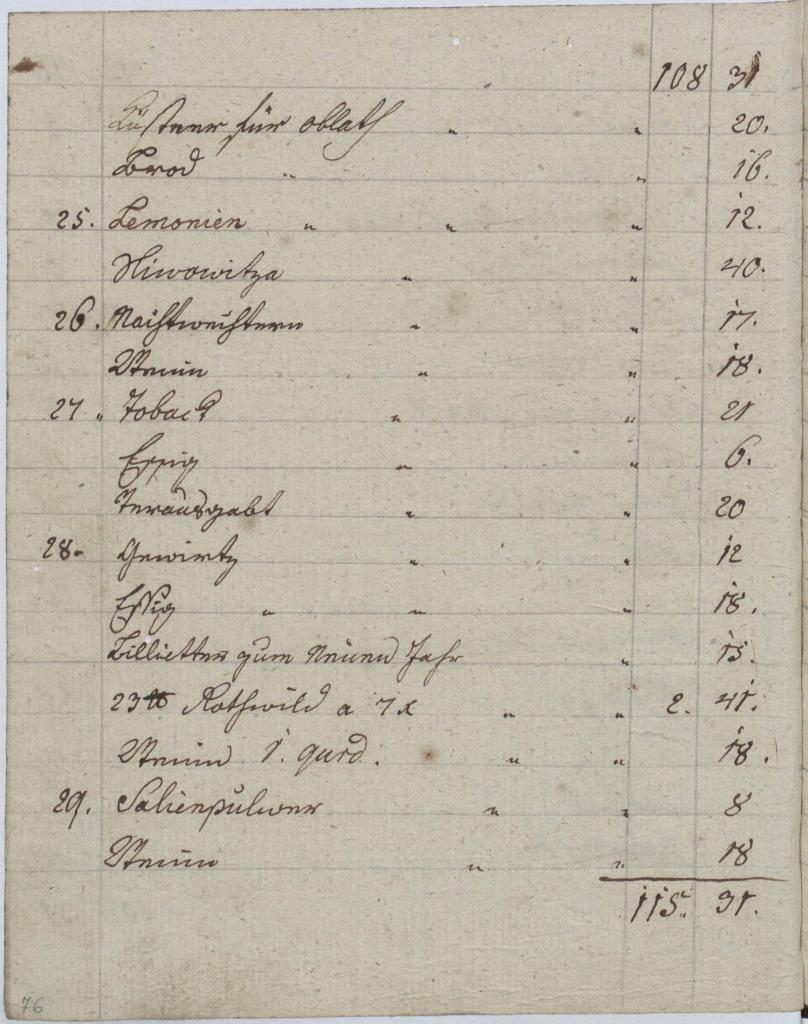 108 31
Küstner für oblath " " 20.
Brod " " 16.
25. Lemonien " " " 12.
Sliwowitza " " 40.
26. Nachtwechtern " " 17.
Wein " " 18.
27 " Toback " " 21
Essig " " 6.
" " 20
28. Gewirtz " " 12
Essig " " " 18.
Billietter zum Neuen Jahr " 15.
23 ℔ Rothwild a 7 x " " 2. 41.
Wein 1. qurd. " " 18.
29. " " 8
Wein " " 18
115. 31.
76